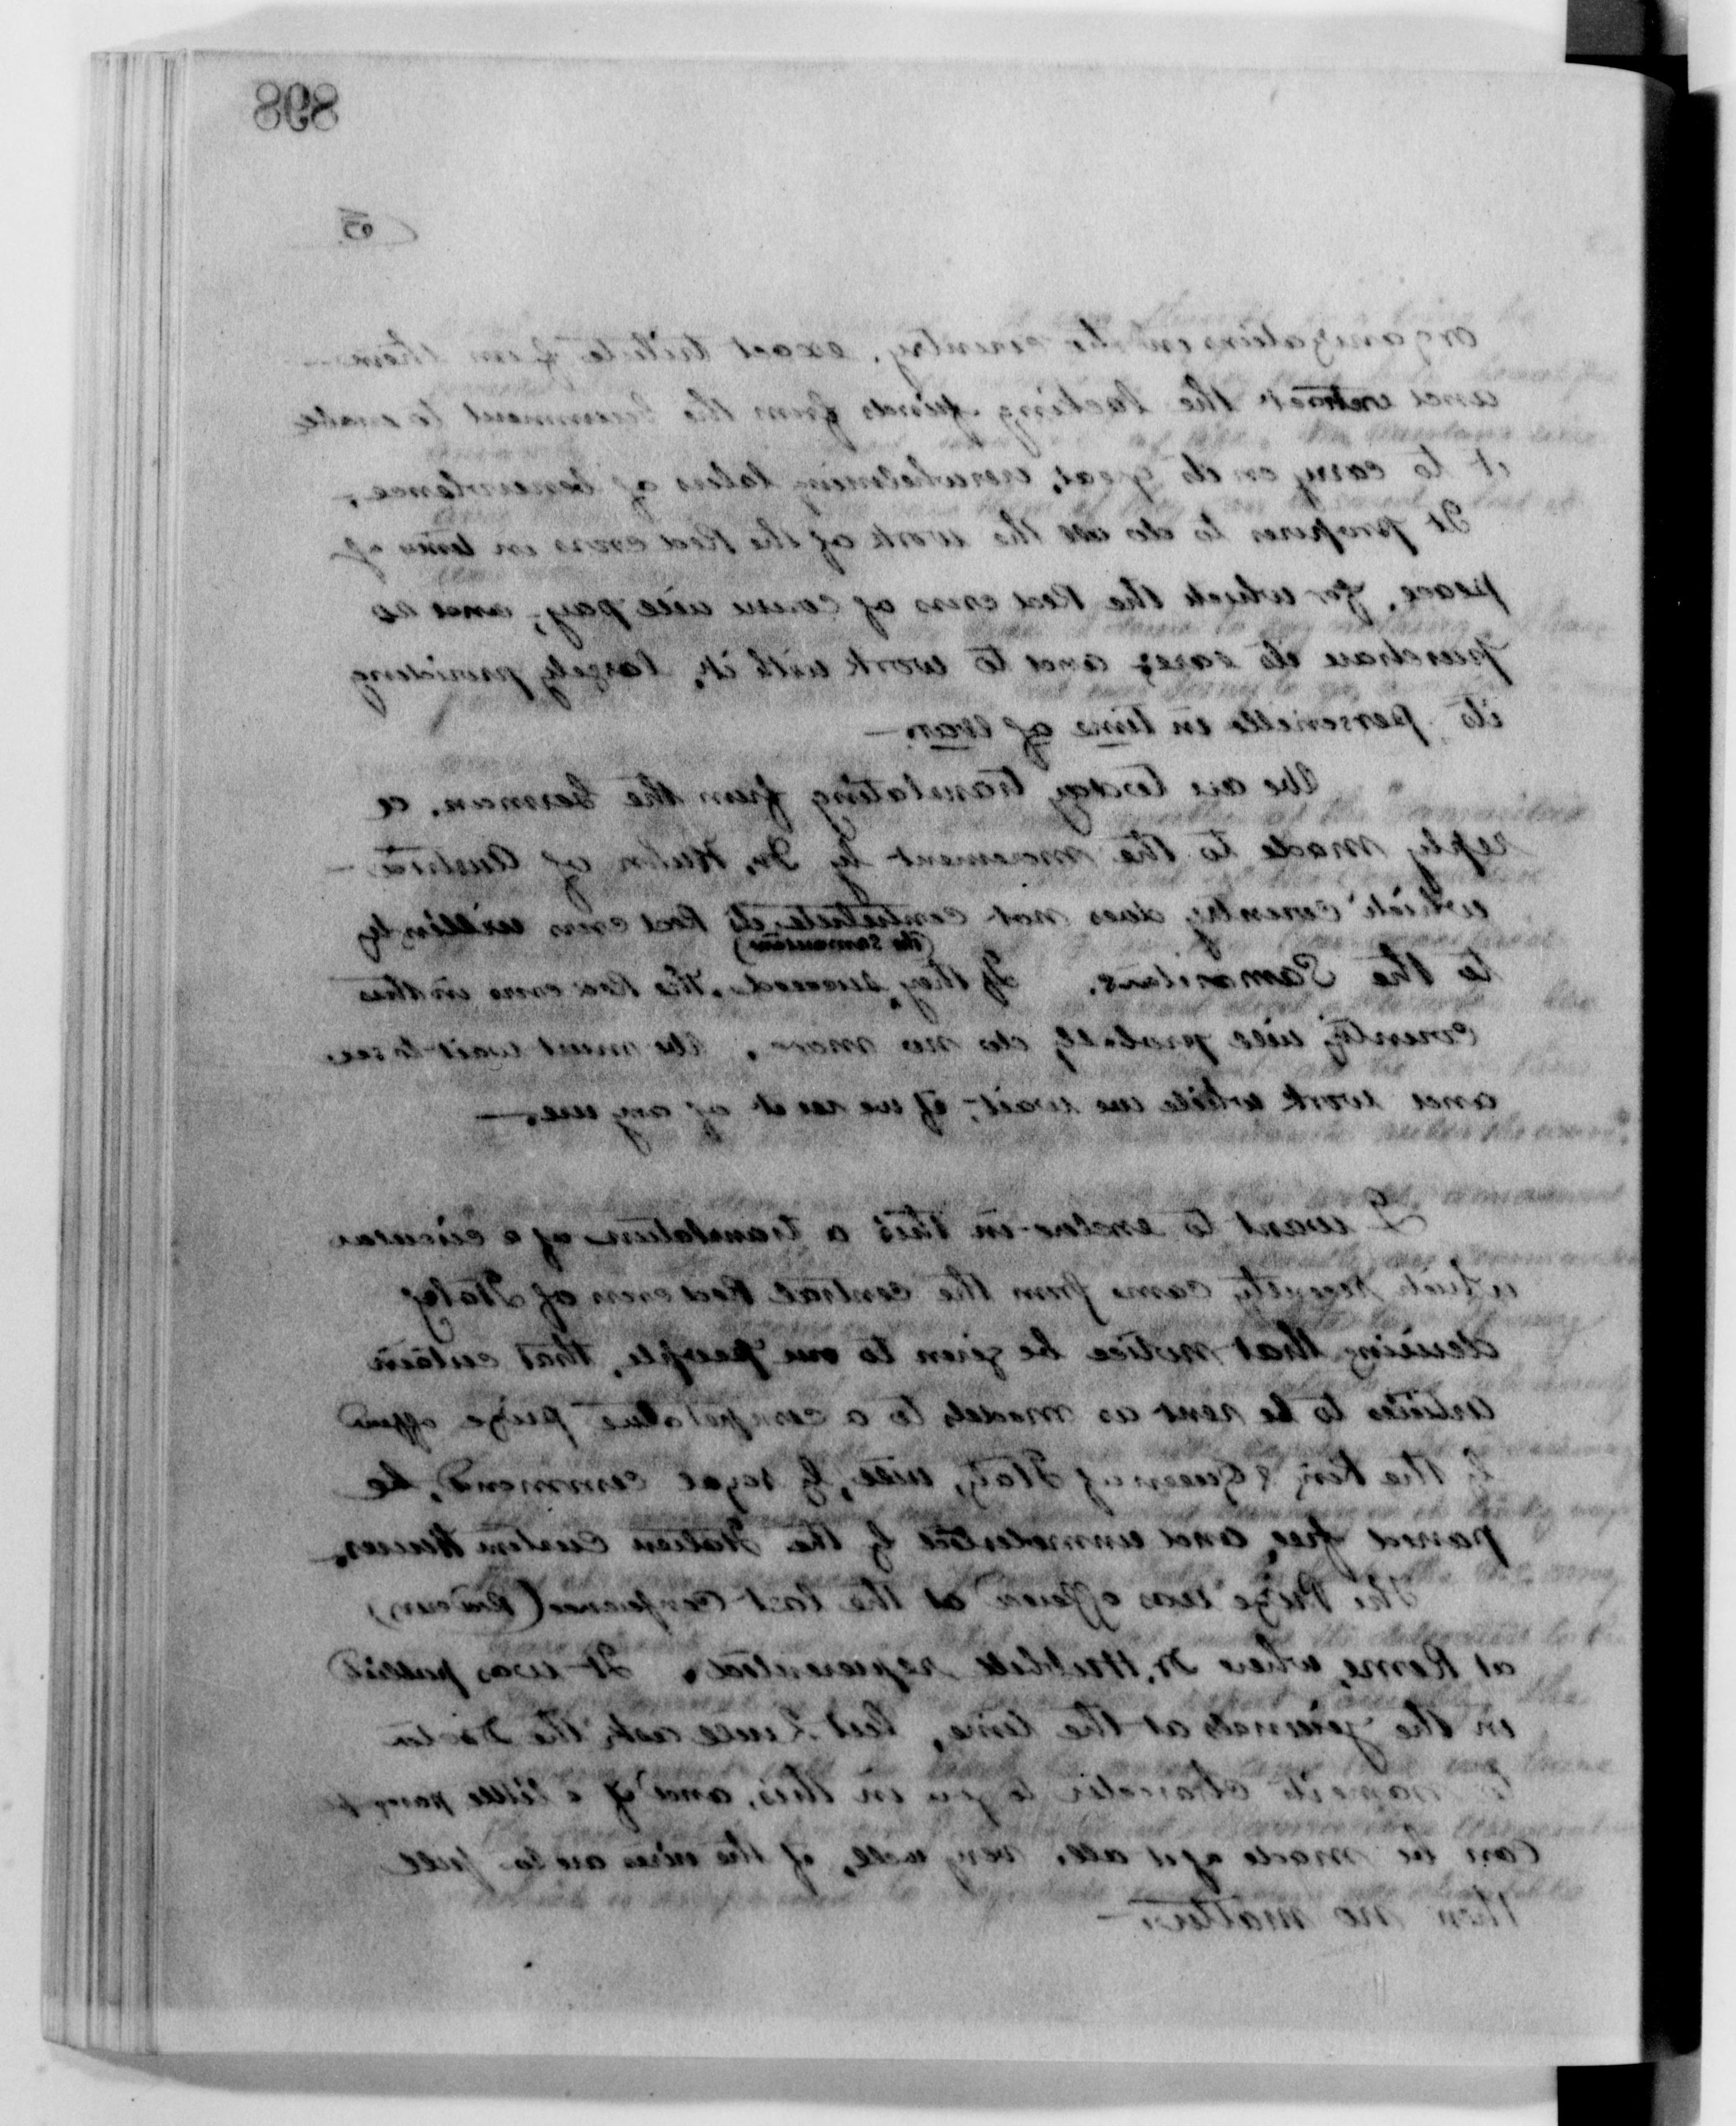 898
5
organizations in the country, exact tribute from them —
and extract the lacking funds from the Government to enable
it to carry on its great, overwhelming labors of benevolence.
It proposes to do all the work of the Red Cross in time of
peace, for which the Red Cross of course will pay, and so
purchase its care, and to work with it, largely providing
its personelle in time of War. —
We are today translating from the German, a
reply made to the movement by Dr. of Austria —
which country does not contribute its Red Cross willingly
(the Samaritans)
to the Samaritans. If they succeed, the Red Cross in this
country will probably do no more. We must wait to see
and work while we wait, if we see it of any use. —
I want to enclose in this a translation of a circular
which recently came from the central Red Cross of Italy
desiring that notice be given to our people, that certain
articles to be sent as models to a competative prize offered
by the King & Queen of Italy, will, by royal command, be
passed free, and unmolested by the Italian Custom Houses.
The Prize was offered at the last Conference (Red Cross)
at Rome, where Dr. Hubbell represented. It was
in the journals at the time, but I will ask the Doctor
to name its character to you in this, and if a little
can be made of it all, very well, if the are to full
then no matter —